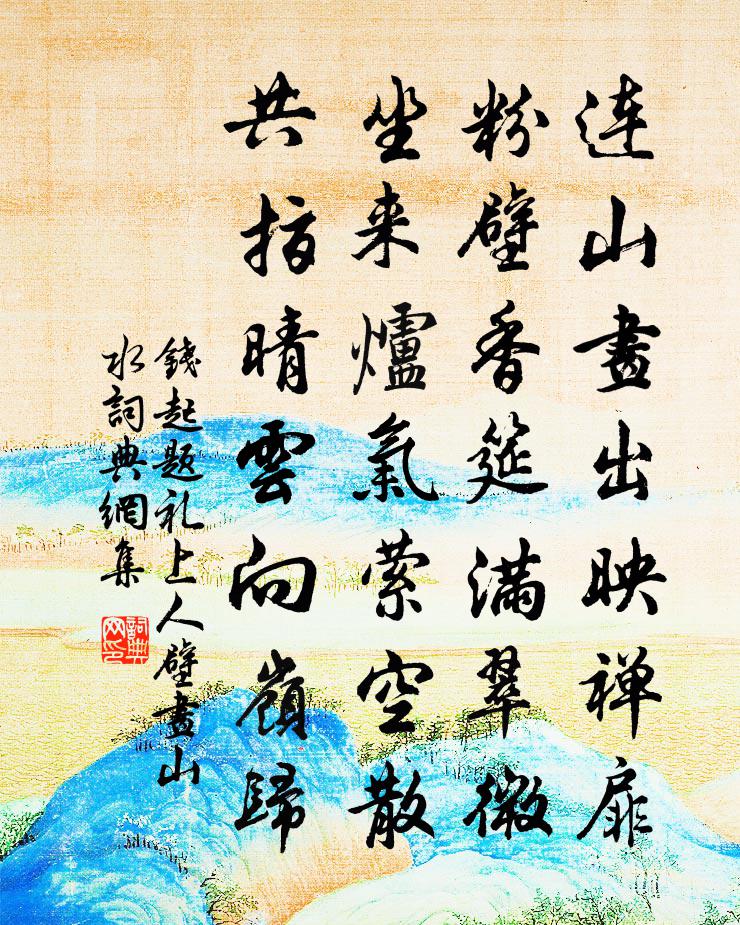 連山畫出映禅扉
粉壁香筵滿翠微
坐来爐氣縈空散
共指晴雲向嶺歸
錢起题礼上人壁畫山
水詞典網集
詞典网印